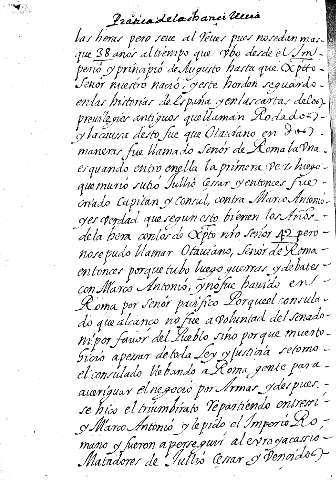 Pratica de la
las heras pero se ve al reves pues no se dan mas
que 38 años al tiempo que ubo desde el Im-
perio y principio de Augusto hasta que Xpto
Señor nuestro nacio, y este horden se guardo
en las historias de España y en las cartas de los
previlegios antiguos que llaman Rodados
y la causa de esto fue que Otaviano en dos
maneras fue llamado Señor de Roma la una
es quando entro en ella la primera vez luego
que murio su tio Jullio Cesar y entonces fue
criado Capitan y Consul, contra Marco Antonio
y es verdad que segun esto vienen los Años
de la hera con los de Xpto nro Señor 42 pero
no se pudo llamar Otaviano, Señor de Roma
entonces porque tubo luego guerras y debates
con Marco Antonio, y no fue havido en
Roma por Señor pacifico Porque el consula-
do que alcanço no fue a voluntad del senado
ni por favor del Pueblo sino porque
hiço apesar de toda Ley y justicia se tomo
el consulado llebando a Roma gente para
averiguar el negocio por Armas y despues
se hiço el triumbirato Repartiendo entre si
y Marco Antonio y lepido el Imperio Ro-
mano y fueron a perseguir a bruto y a cassio
Matadores de Jullio Cesar y Vencidos